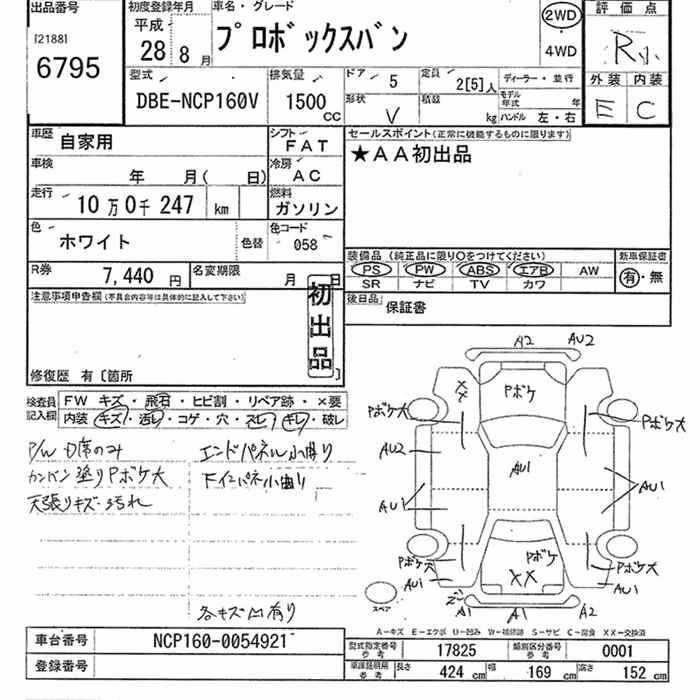 出品番号
[2188]
6795
初度登録年月
平成
28年8月
車名・グレード
プロボックスバン
2WD
4WD
評価点
R小
外装 内装
E C
型式
DBE-NCP160V
排気量
1500
CC
ドア
5
定員
2[5]人
形状
V
積載
kg
ディーラー・並行
モデル年式 年
ハンドル 左・右
車歴 自家用
シフト FAT
車検 年 月( 日)
冷房 AC
走行 10万0千247 km
燃料 ガソリン
色 ホワイト
色替
色コード 058
R券 7,440円
名変期限 月 日
セールスポイント(正常に機能するものに限ります)
★AA初出品
装備品(純正品に限り○をつけてください)
PS PW ABS エアB AW
SR ナビ TV カワ
新車保証書
有・無
後日品 保証書
注意事項申告欄(不具合内容等は具体的に記入して下さい)
初出品
修復歴 有〔箇所 〕
検査員記入欄
FW キズ・飛石・ヒビ割・リペア跡・×要
内装 キズ・汚レ・コゲ・穴・スレ・キレ・破レ
P/W D席のみ
カンバン塗りPボケ大
天張りキズ・汚れ
エンドパネル小曲り
下インパネ小曲り
各キズ凹有り
A2 AU2
XX
Pボケ
Pボケ大
Pボケ大
AU2
AU1
AU1
AU1
Pボケ大
Pボケ
Pボケ大
AU1
XX
AU1
スペア
A1 A1 A2
A-キズ E-エクボ U-凹み W-補修跡 S-サビ C-腐食 XX-交換済
車台番号 NCP160-0054921
登録番号
型式指定番号 参考 17825
類別区分番号 参考 0001
車庫証明用 参考
長さ 424 cm
幅 169 cm
高さ 152 cm